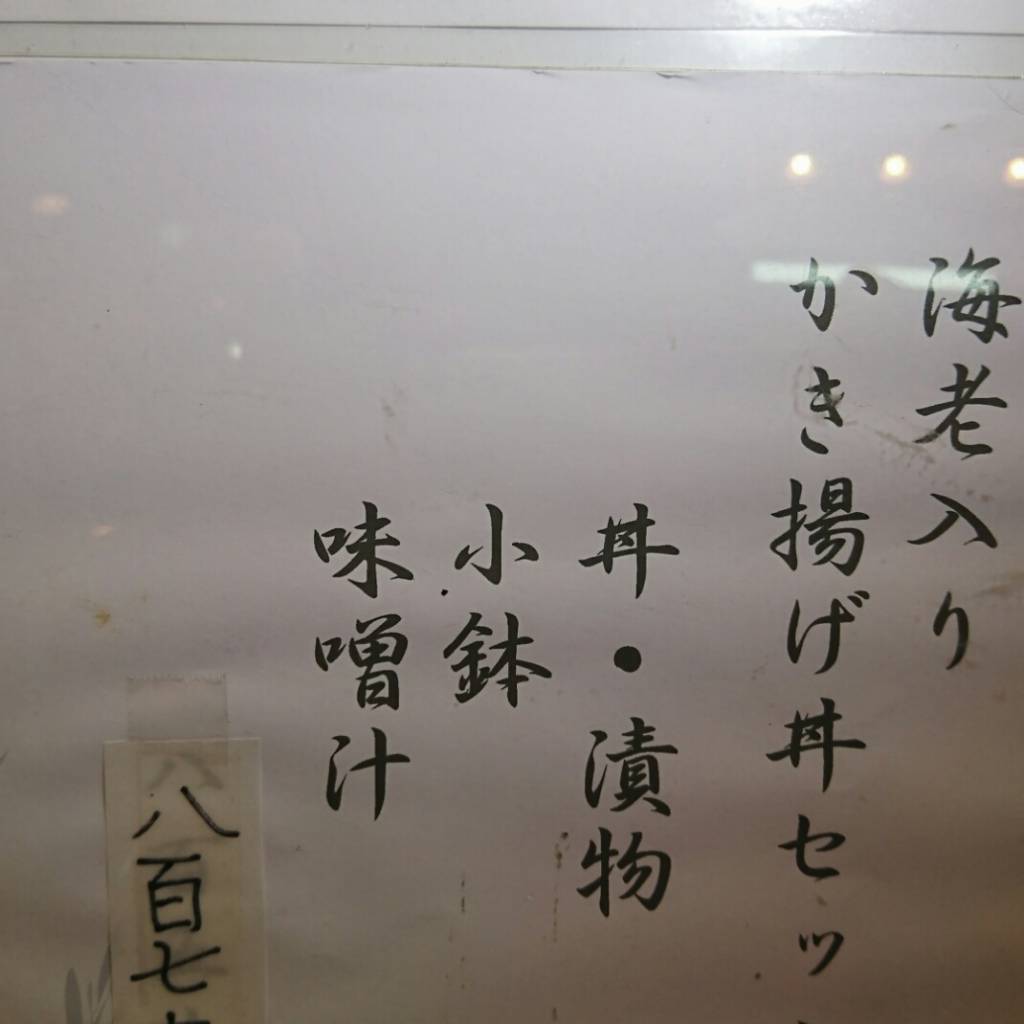 海老入り
かき揚げ丼セッ
丼・漬物
小鉢
味噌汁
八百七